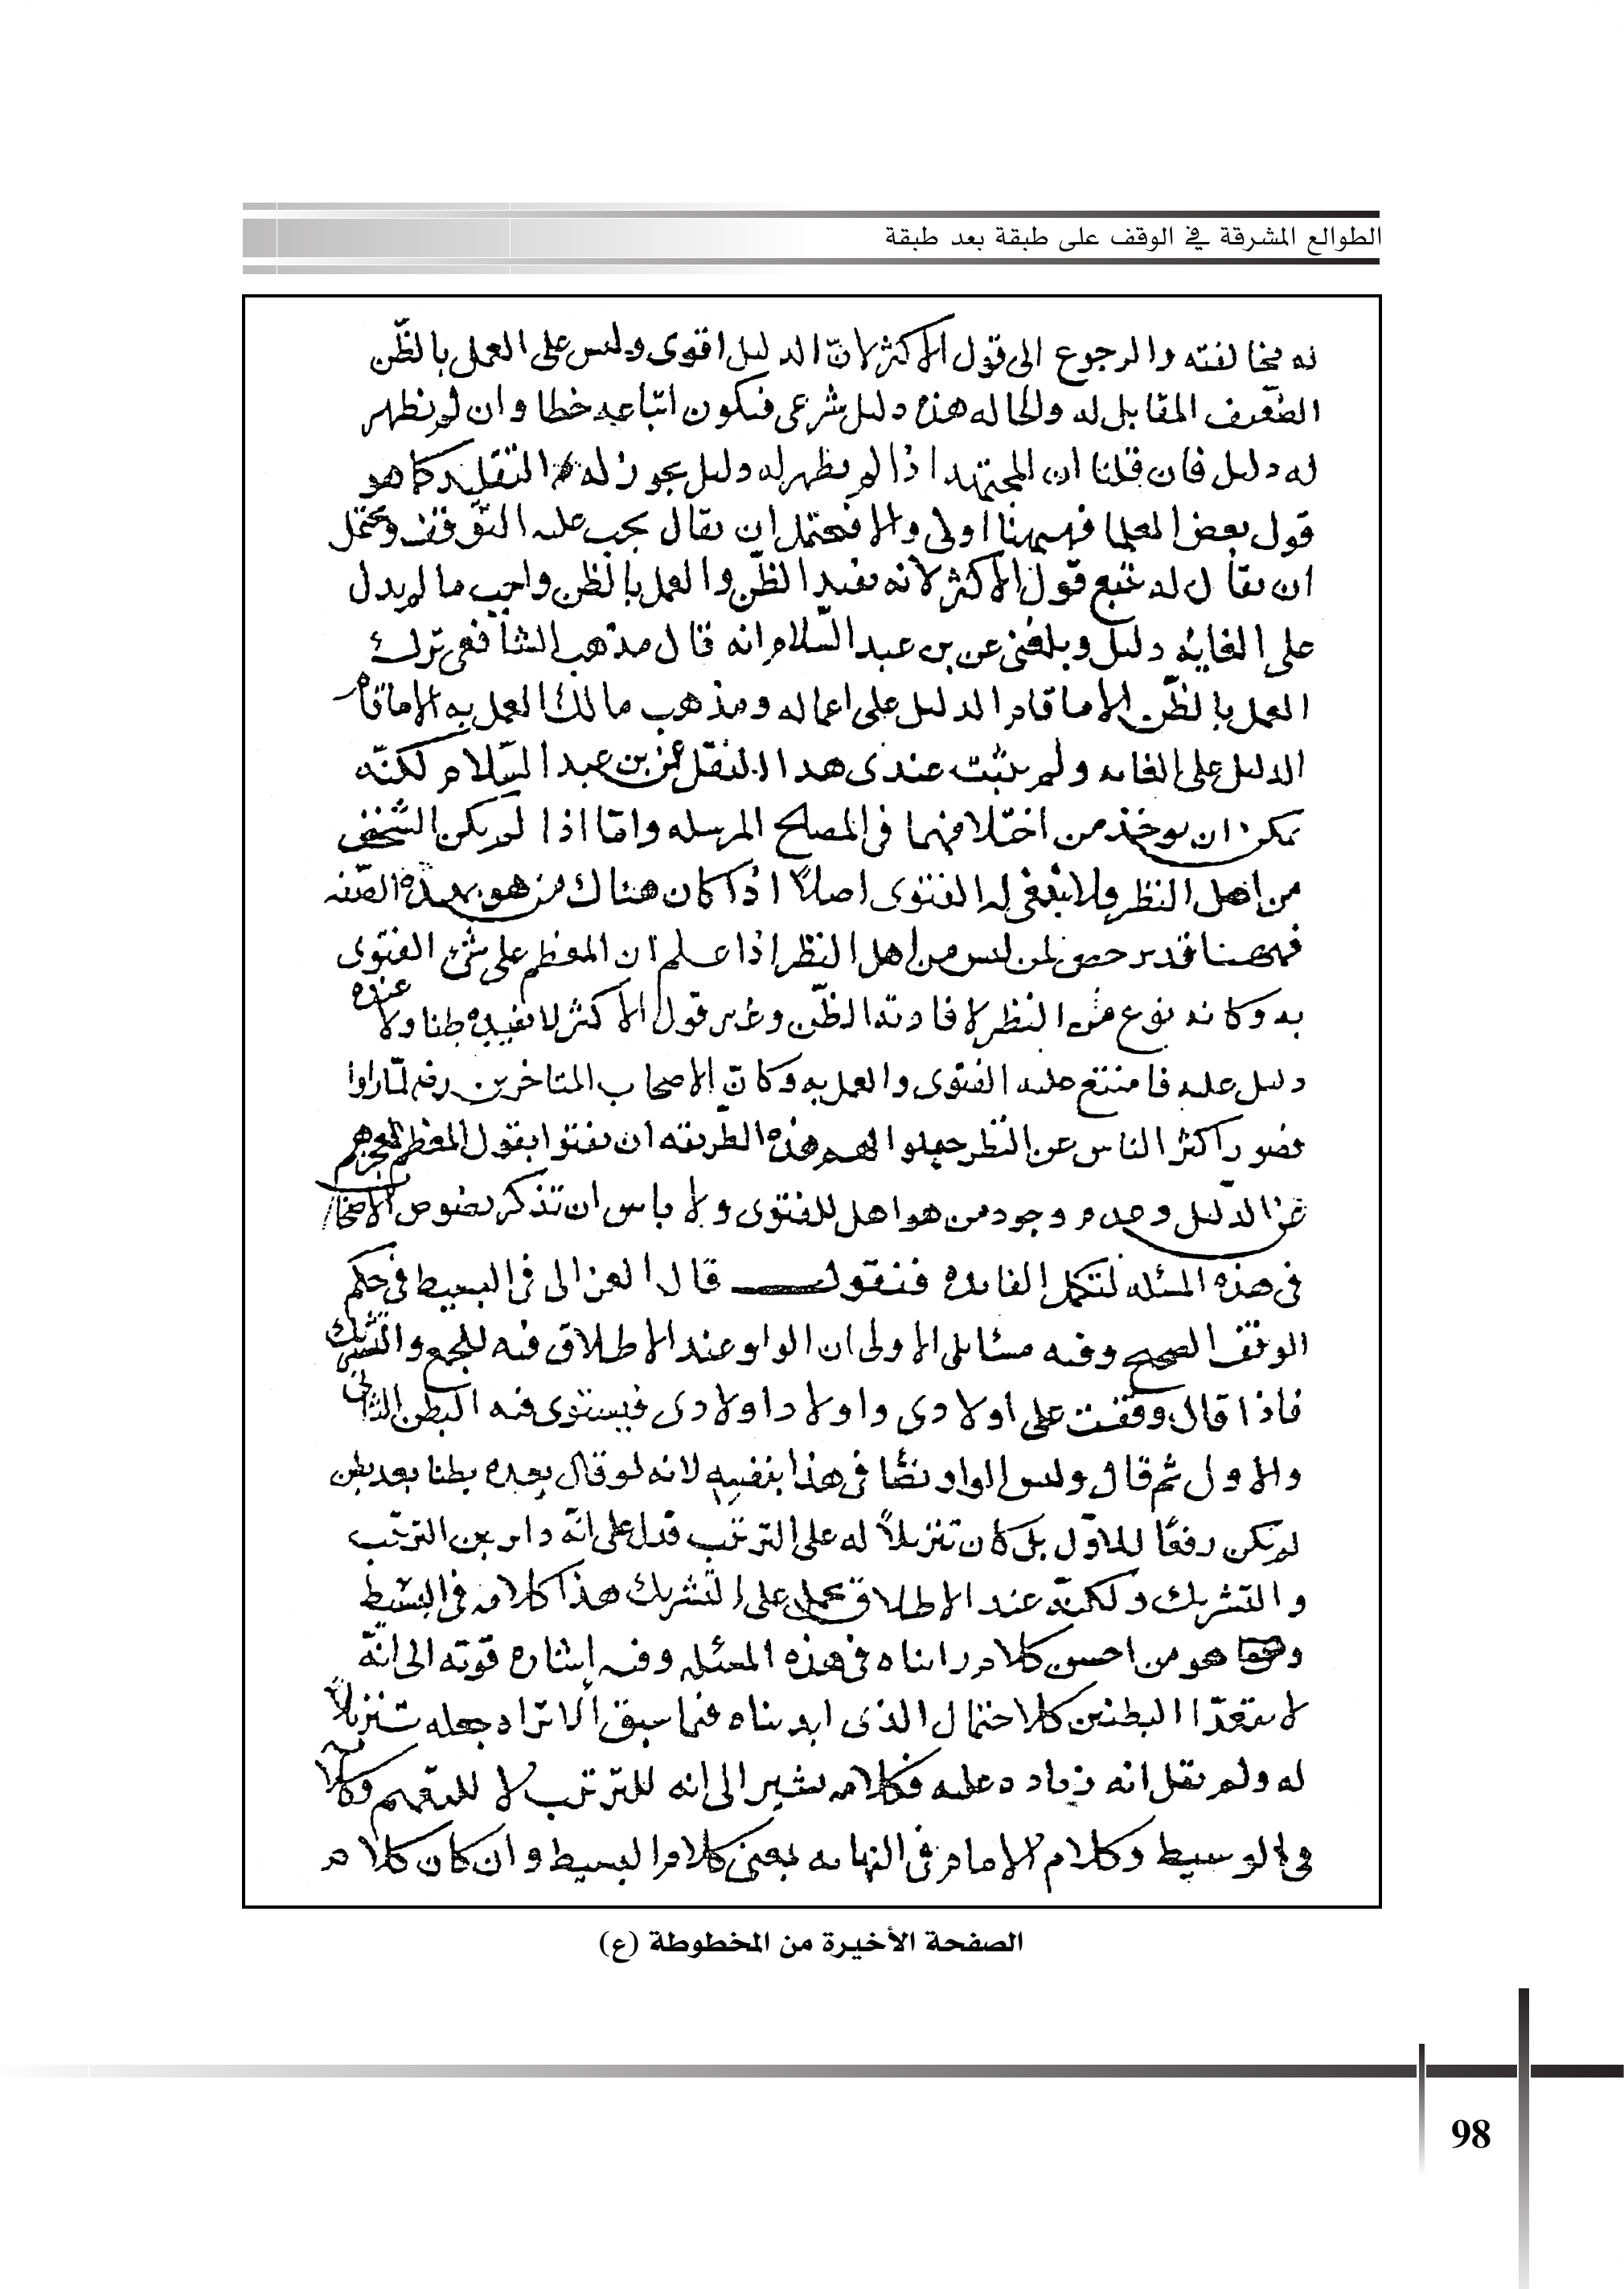 الطوالع المشرقة في الوقف على طبقة بعد طبقة
له مخالفته والرجوع الى قول الاكثر لانّ الدليل اقوى وليس على العمل بالظّن
الضعيف المقابل له والحاله هذه دليل شرعى فيكون اتباعه خطا وان لم يظهر
له دليل فان قلنا ان المجتهد اذا لم يظهر له دليل يجوز له التقليد كما هو
قول بعض العلما فههنا اولى والا فيحتمل ان يقال يجب عليه التوّقف ويحتمل
ان يقال له تتبع قول الاكثر لانه يفيد الظّن والعمل بالظن واجب ما لم يدل
على الغايه دليل وبلغنى عن بن عبد السّلام انه قال مذهب الشافعى ترك
العمل بالظّن الا ما قام الدليل على اعماله ومذهب مالك العمل به الا ما قام
الدليل على الغايه ولم يثبت عندى هدا النقل عن بن عبد السّلام لكنّه
يمكن ان يوخذ من اختلافهما فى المصلح المرسله وامّا اذا لم يكن الشخص
من اهل النظر فلا ينبغى له الفتوى اصلاً اذا كان هناك من هو بهذه الصّفه
فههنا قد يرخص لمن ليس من اهل النظر اذا علم ان المعظم على شئ الفتوى
به وكانه نوع من النظر لافادته الظّن وغير قول الاكثر لا يفيده ظنا ولا عنده
دليل عليه فامتنع عليه الفتوى والعمل به وكانّ الاصحاب المتاخرين لمّا راوا
قصور اكثر الناس عن النّظر جعلوا لهم هذه الطريقه ان يفتوا بقول المعظم لعجزهم
عن الدّليل وعدم وجود من هو اهل للفتوى ولا باس ان تذكر نصوص الاصحاب
فى هذه المسئله لتكمل الفايده فنقول قال الغزالى فى البسيط فى حكم
الوقف الصحيح وفيه مسائل الاولى ان الواو عند الاطلاق فيه للجمع والتشريك
فاذا قال وقفت على اولادى واولاد اولادى فيستوى فيه البطن الثانى
والاول ثم قال وليس الواو نصّا فى هذا بنفسه لانه لو قال بعده بطنا بعد بطن
لم يكن رفعًا للاوّل بل كان تنزيلاً له على الترتيب فدل على انّه داير بين الترتيب
والتشريك ولكنّه عند الاطلاق يحمل على التّشريك هذا كلامه فى البسيط
وهو من احسن كلام رايناه فى هذه المسئله وفيه إشارة قوّيه الى انّه
لا يتعدّا البطنين كالاحتمال الذى ابديناه فيما سبق ألا تراه جعله تنزيلاً
له ولم يقل انه زياده عليه فكلامه يشير الى انه للترتيب لا للتعميم وكلامه
فى الوسيط وكلام الامام فى النهايه بمعنى كلام البسيط وان كان كلام
الصفحة الأخيرة من المخطوطة (ع)
98